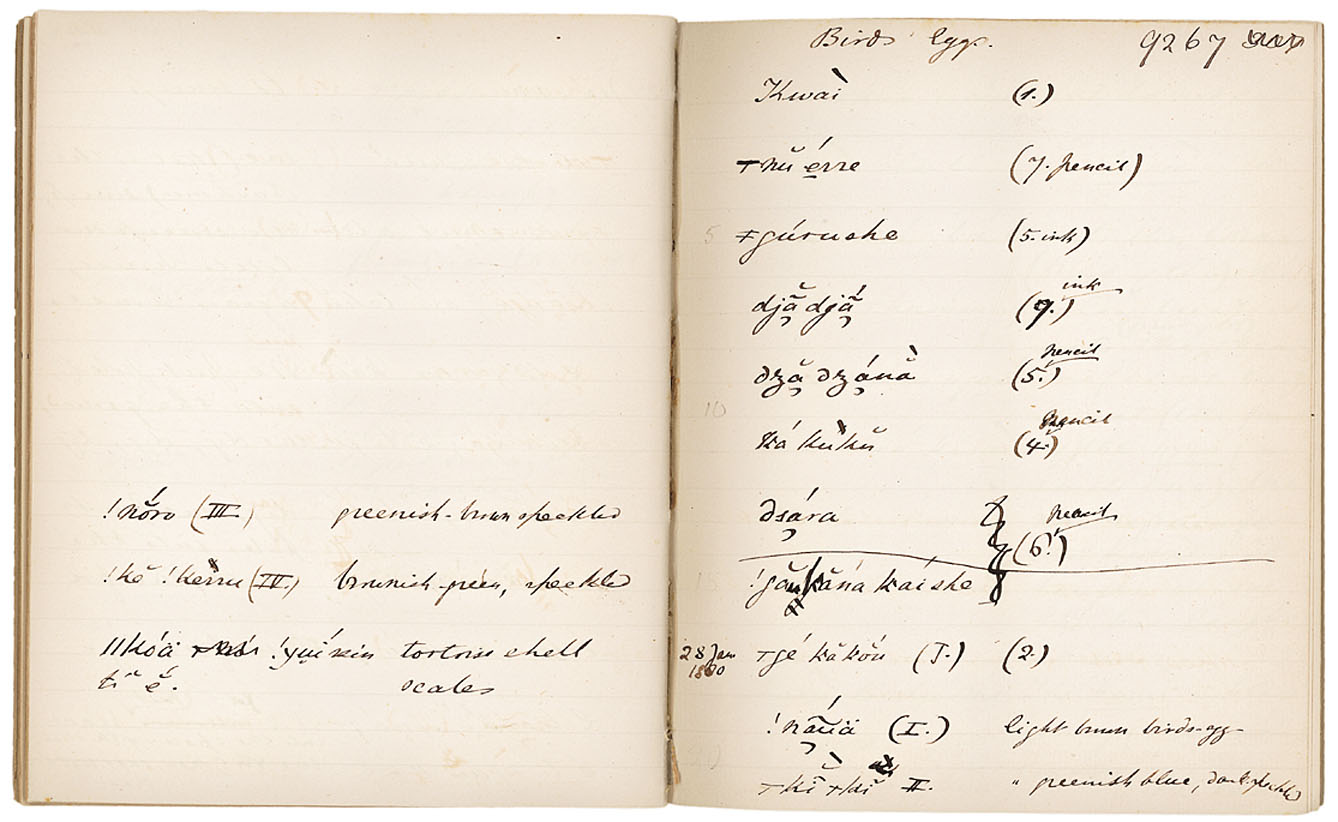 !nŏ́ro (III.) greenish-brown speckled
!kĕ !kèrru (IV.) brownish-green, speckled
ǁkóä !guíxin tortoise shell
tĭ é. scales
Birds' eggs. 9267
Kwaì (1.)
ǂnŭ érre (7. pencil)
5 ǂgúrushe (5. ink)
djă djá (9.) ink
dză dzánà (5.) pencil
10
ká kùkŭ (4.) pencil
dsára (6.) pencil
15 kána kaíshe
28 Jan 1880 ǂgé kăkŏ́u (I.) (2.)
!náüä (I.) light brown birds-egg
20 II. " greenish blue, dark speckled